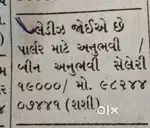 લેડીઝ જોઈએ છે
પાર્લર માટે અનુભવી /
બીન અનુભવી સેલેરી
૧૯૦૦૦/ મો. ૯૮૨૪૪
૦૭૪૪૧ (રાશી)
olx